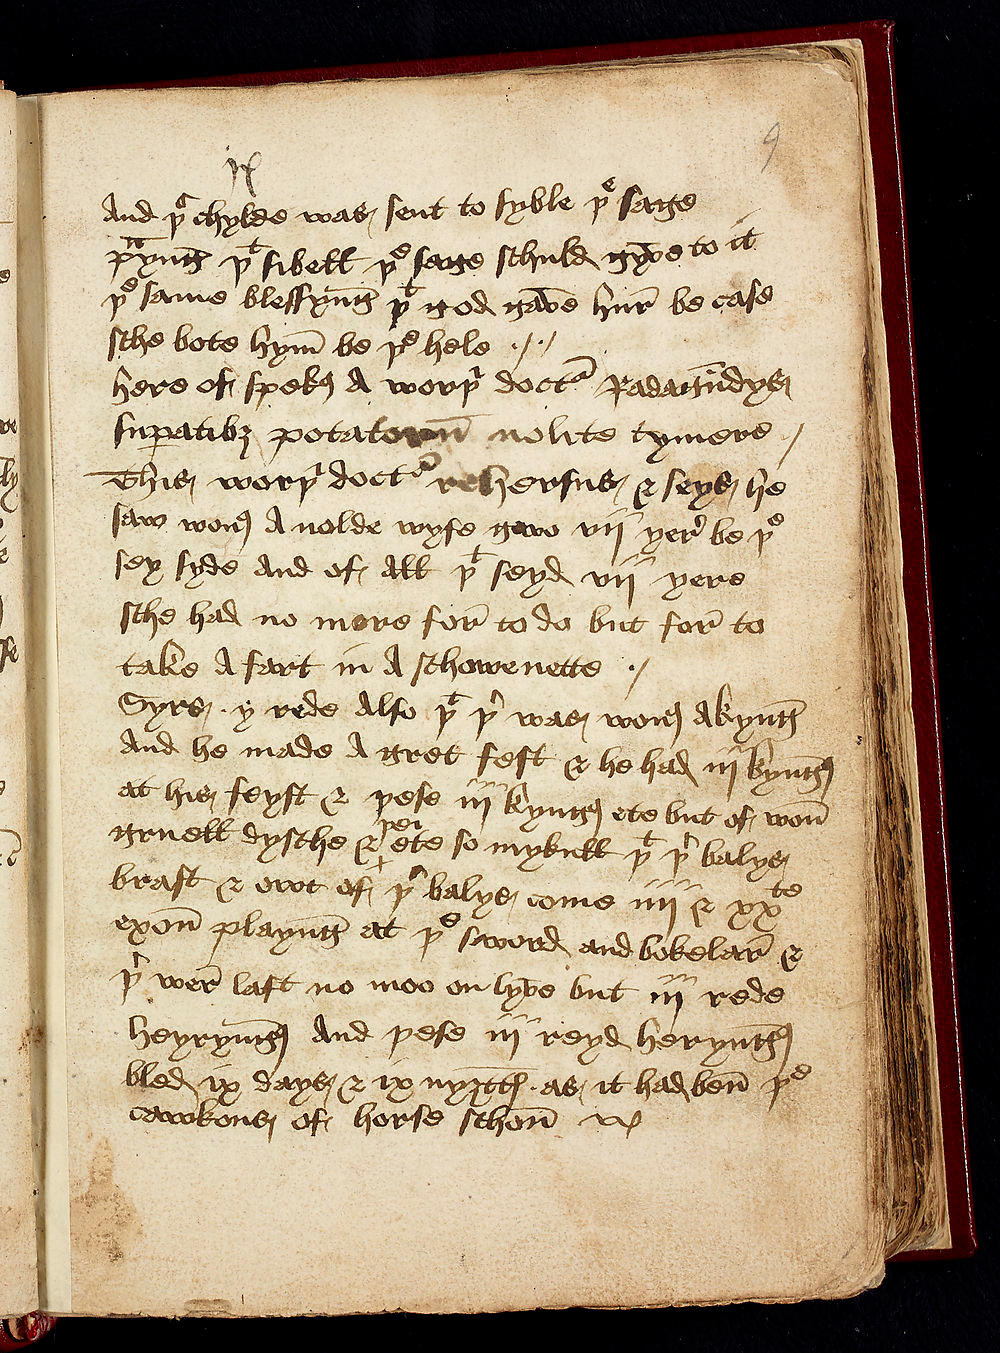 9
ix
And þᵗ chylde was sent to syble þᵉ sage
prayng þᵗ sibell þᵉ sage schuld gyve to it
þᵉ same blessyng þᵗ god gave hur be case
sche bote hym be þᵉ hele
here of spekꝭ A worþⁱ doctᵒʳ Radagūdys
supatibꝫ potatorū nolite tymere
This worþⁱ doctᵒʳ rehersus & seys he
saw wonꝭ A nolde wyfe gwo vii yer be þᵉ
sey syde and of all þᵗ seyd vii yere
sche had no more for to do but for to
take A fart in A schowenette
Syrs y rede Also þᵗ þʳ was wonꝭ A kyng
And he made A gret fest & he had iij kyngꝭ
at his feyst & þese iij kyngꝭ ete but of won
gruell dysche & þei ete so mykull þᵗ þʳ balys
brast & owt of þʳ balys come iiij & xxᵗⁱ
exon playng at þᵉ sword and bokelar &
þʳ wer laft no moo on lyve but iij rede
heyryngꝭ And þese iij reyd heryngꝭ
bled ix days & ix nyȝttꝭ as it had ben þᵉ
cawkons of horse schon